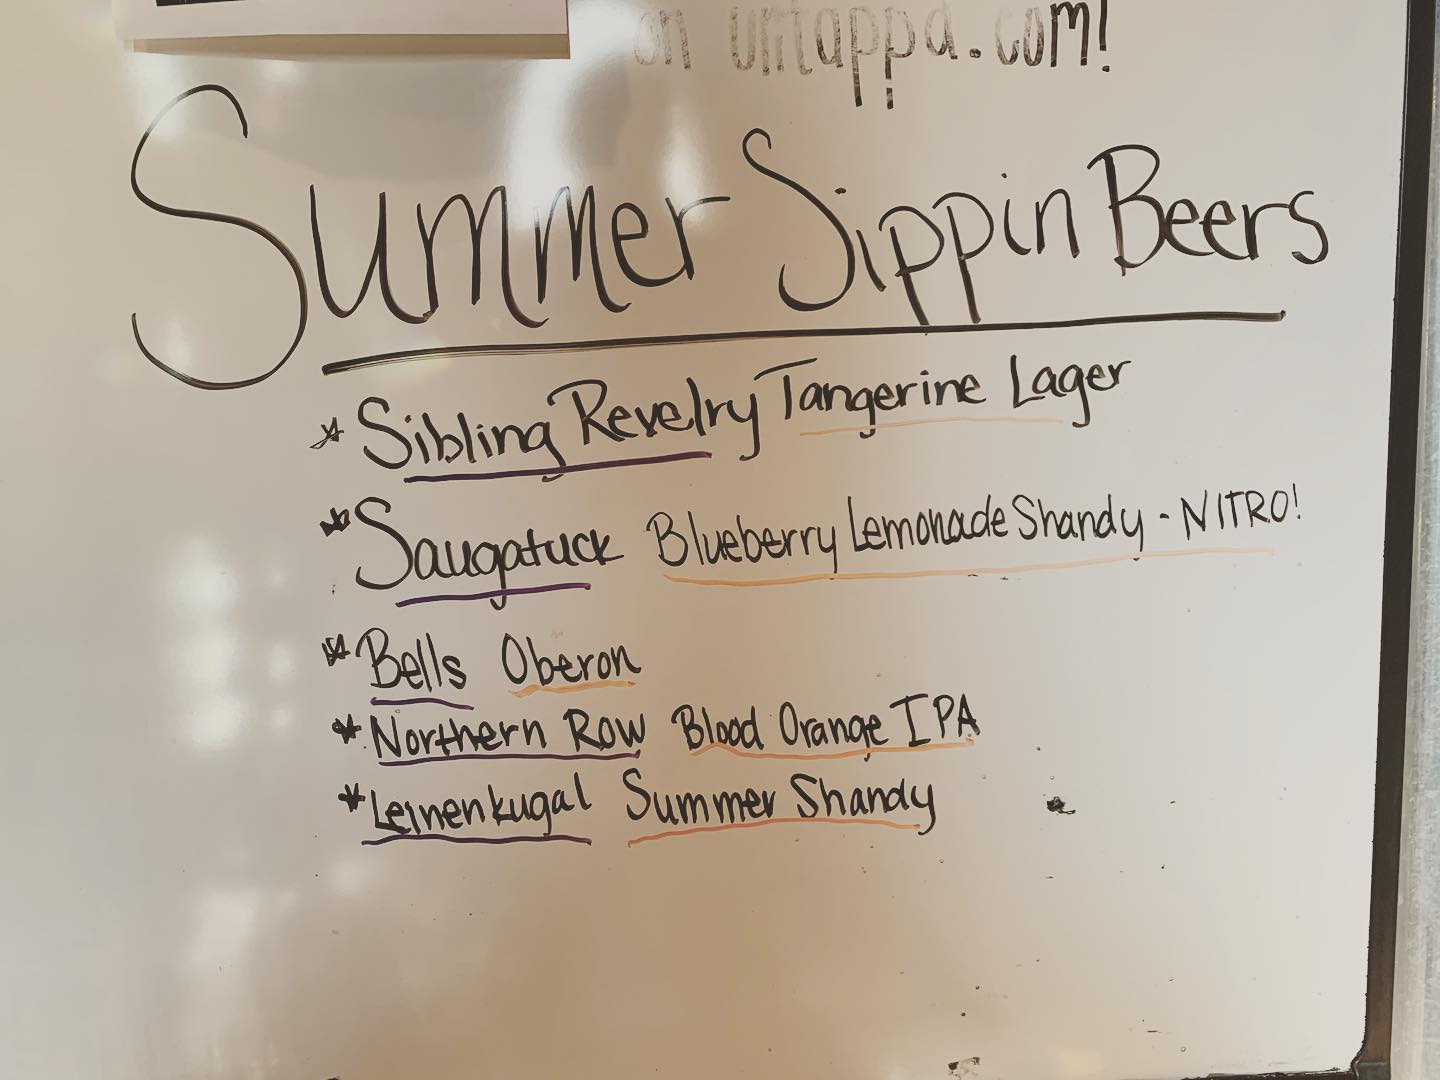 on untappd.com!
Summer Sippin Beers
* Sibling Revelry Tangerine Lager
* Saugatuck Blueberry Lemonade Shandy - NITRO!
* Bells Oberon
* Northern Row Blood Orange IPA
* Leinenkugal Summer Shandy